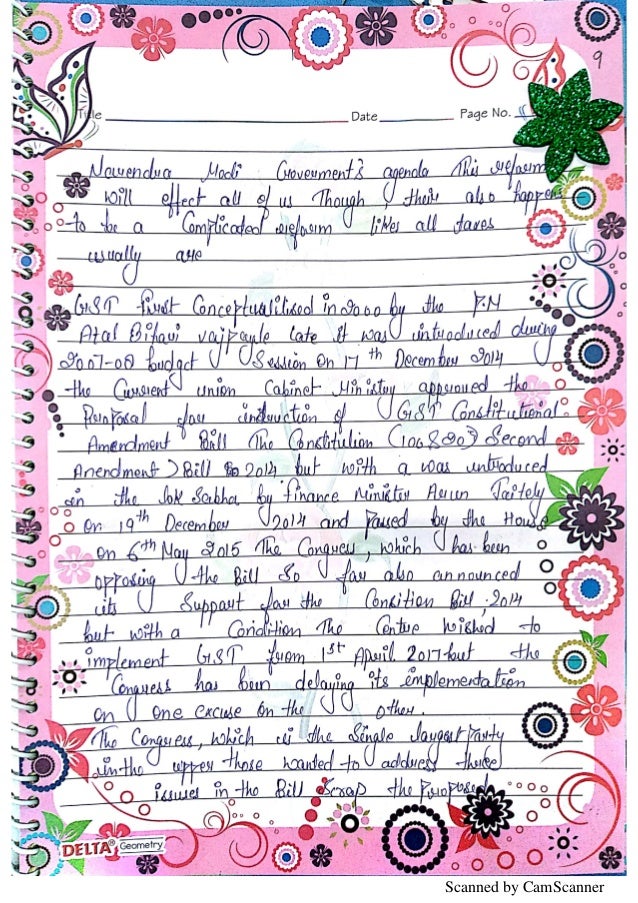 9
Title Date Page No.
Narendra Modi Goverment's agenda This reform
will effect all of us Though, their also happens
to be a Complicaded reform likes all taxes
usually are
GST first Conceptualilised in 2000 by the P.M
Atal Bihari vajpayle late it was introduced during
2007-08 budget Session On 17th December 2014
the Current union Cabinet Ministry approved the
Proposal for instruction of GST Constitutional
Amendment Bill The Constitution Second
Amendment) Bill 2014, but with a was introduced
in the lok Sabha by finance Minister Arun Jaitely
On 19th December 2014 and Passed by the House
on 6th May 2015 The Congress, which has been
opposing the Bill So far also announced
its Support for the Consition Bill, 2014
but with a Condition The Centre wished to
implement GST from 1st April 2017 but the
Congress has been delaying its implementation
on one excuse On the other.
The Congress, which is the Single largest Party
in the upper those wanted to address three
issues in the Bill Scrap the Proposed
DELTA® Geometry
Scanned by CamScanner